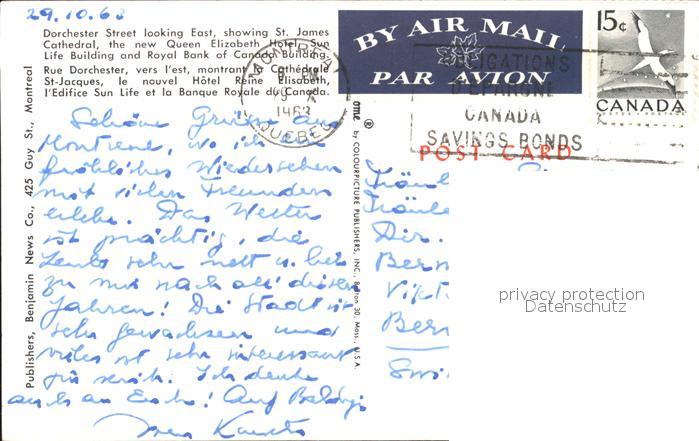 29.10.63
Dorchester Street looking East, showing St. James
Cathedral, the new Queen Elizabeth Hotel, Sun
Life Building and Royal Bank of Canada Building.
Rue Dorchester, vers l'est, montrant la Cathédrale
St-Jacques, le nouvel Hôtel Reine Elisabeth,
l'Edifice Sun Life et la Banque Royale du Canada.
Publishers, Benjamin News Co., 425 Guy St., Montreal
BY AIR MAIL
PAR AVION
15¢
CANADA
POSTES - POSTAGE
MONTREAL
QUEBEC
OBLIGATIONS
D'EPARGNE
CANADA
SAVINGS BONDS
POST CARD
by COLOURPICTURE PUBLISHERS, INC., Boston 30, Mass., U.S.A.
Schöne Grüsse aus
wo ich
fröhliches Wiedersehen
mit vielen Freunden
erlebe. Das Wetter
ist prächtig, die
Leute sehr nett u. lieb
zu mir nach all' diesen
Jahren! Die Stadt ist
sehr gewachsen und
vieles ist sehr interessant
für mich. Ich denke
auch an Euch! Auf Baldigs
Fräul
Fräule
Dir.
Bern
Vikt
Bern
Swi
privacy protection
Datenschutz